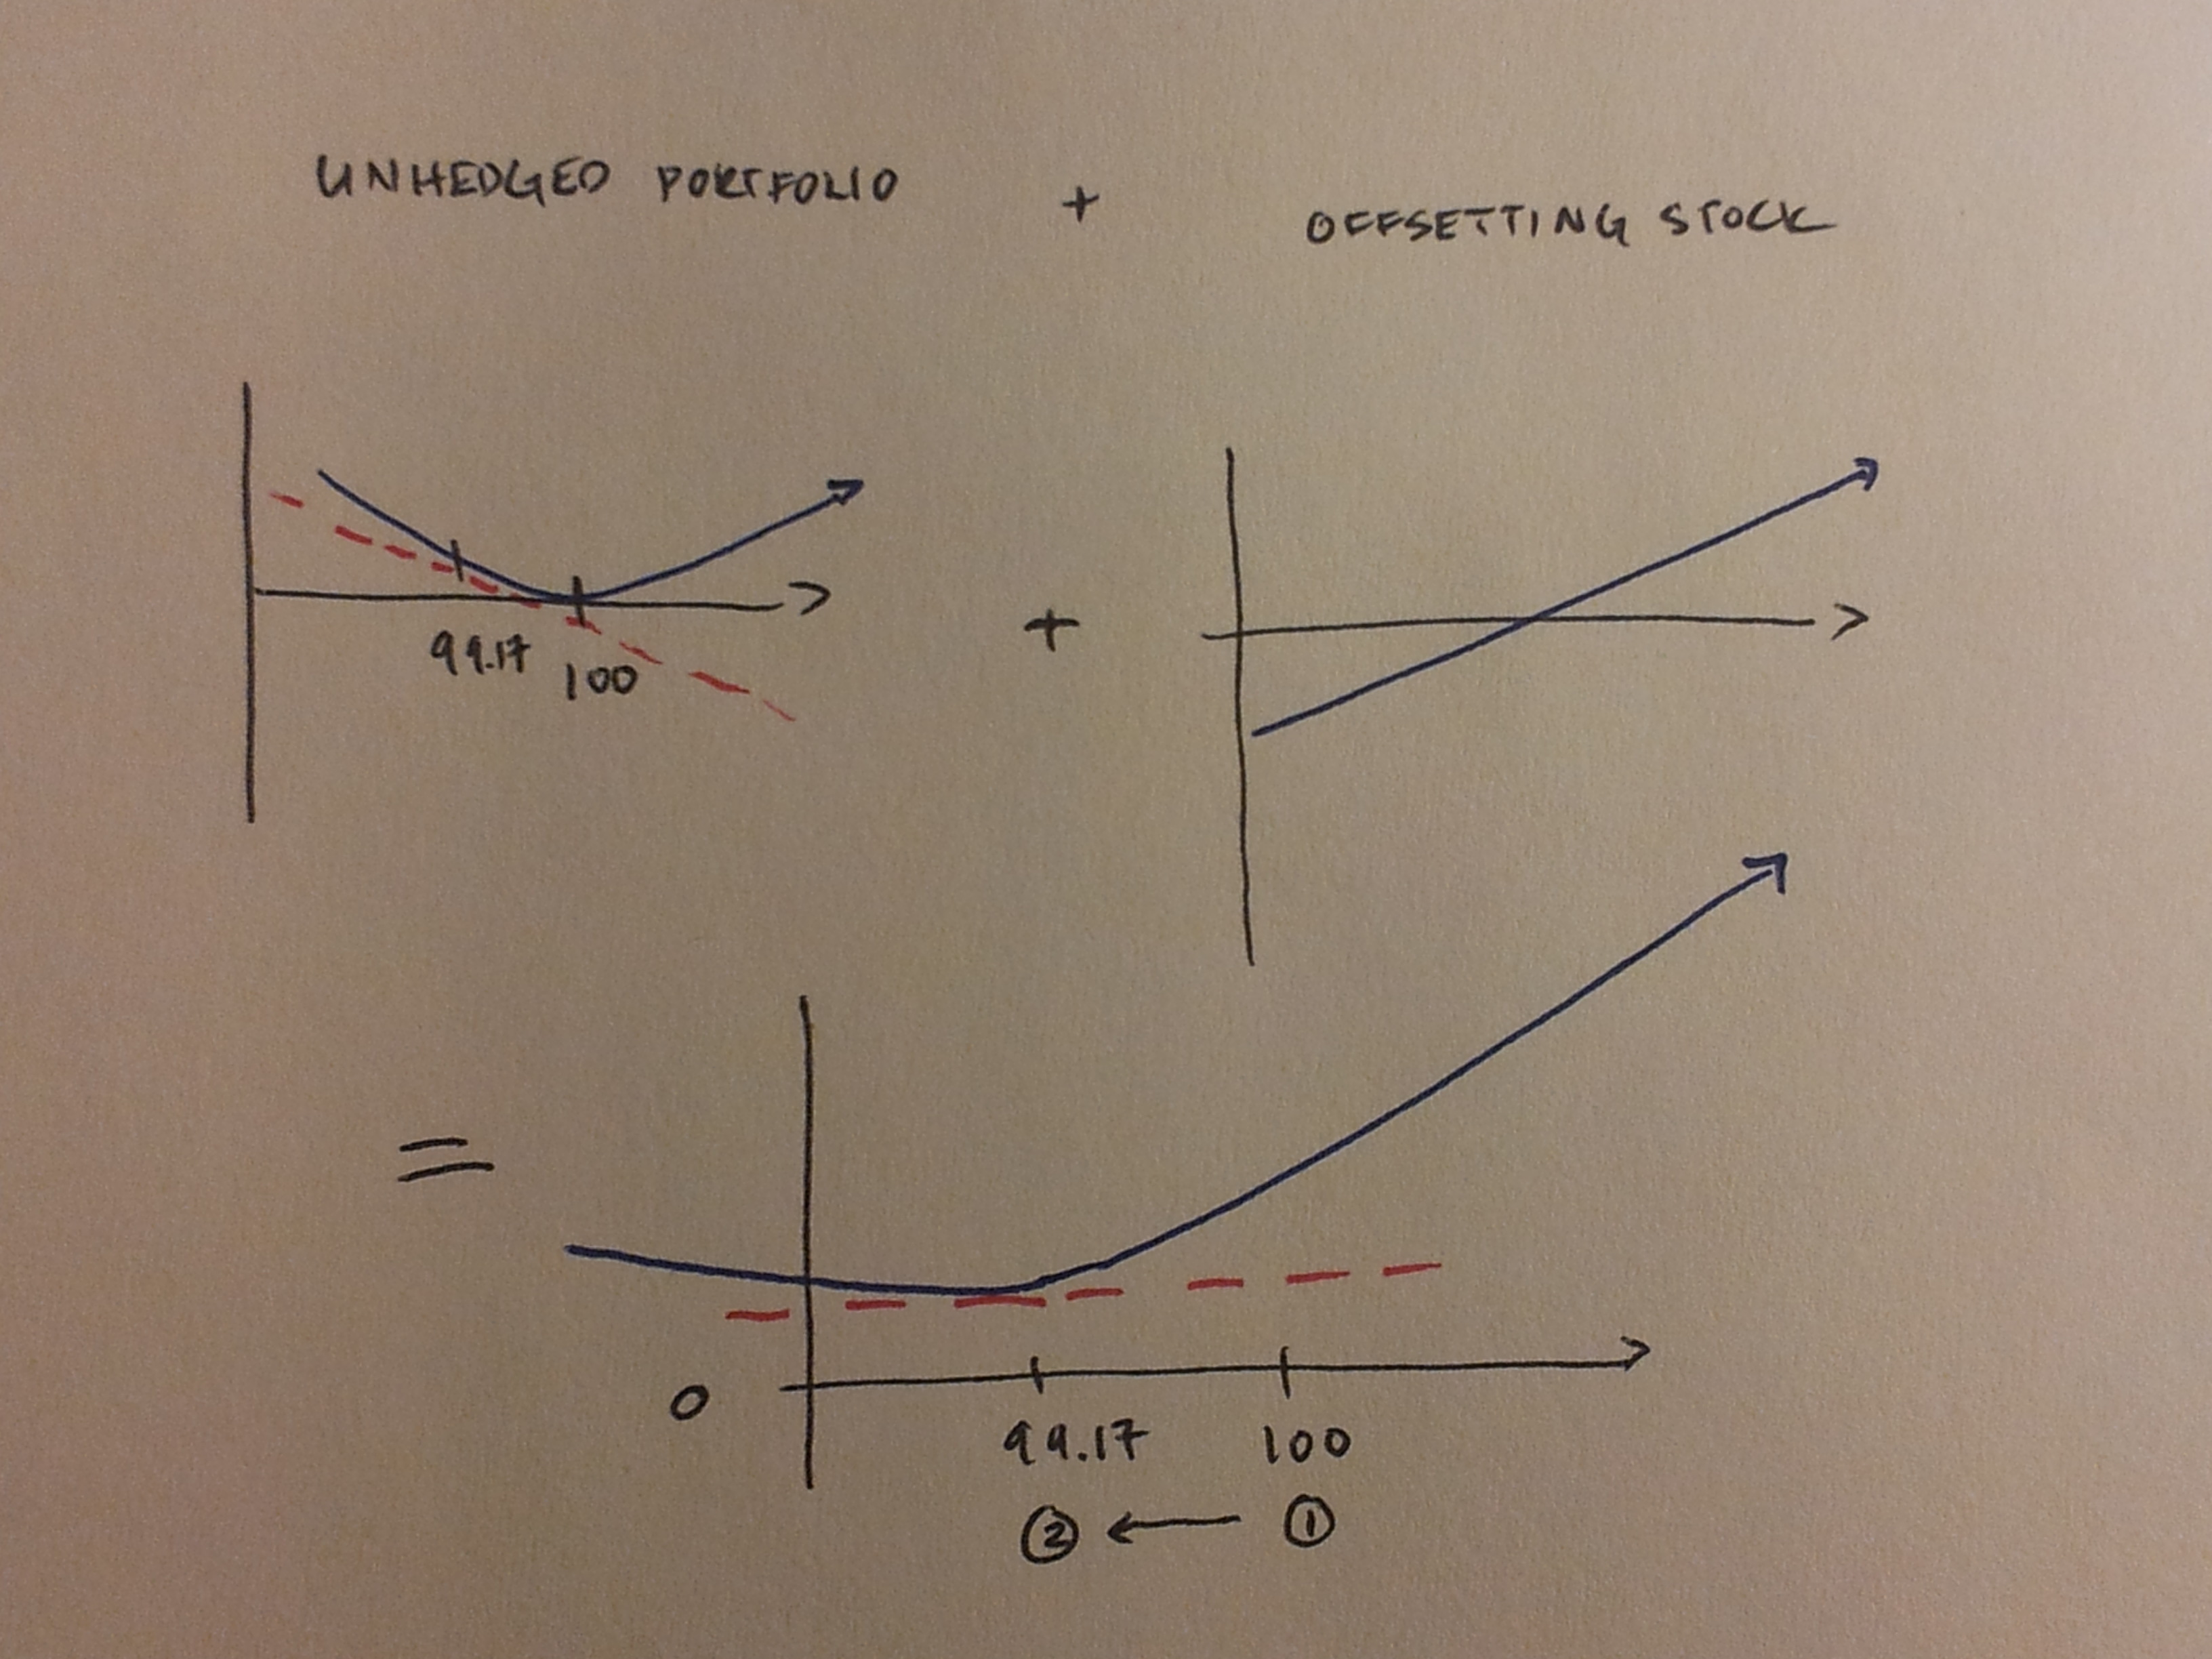 UNHEDGED PORTFOLIO + OFFSETTING STOCK
99.17 100
+
=
0
99.17 100
② ← ①